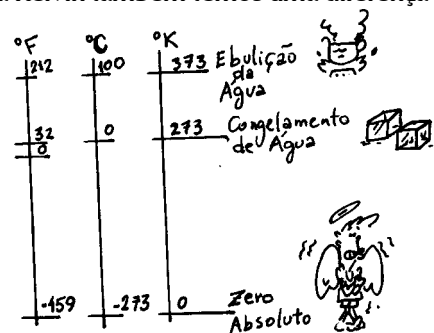 °F °C °K
212 100 373 Ebulição
da
Água
32 0 273 Congelamento
de Água
0
-459 -273 0 Zero
Absoluto